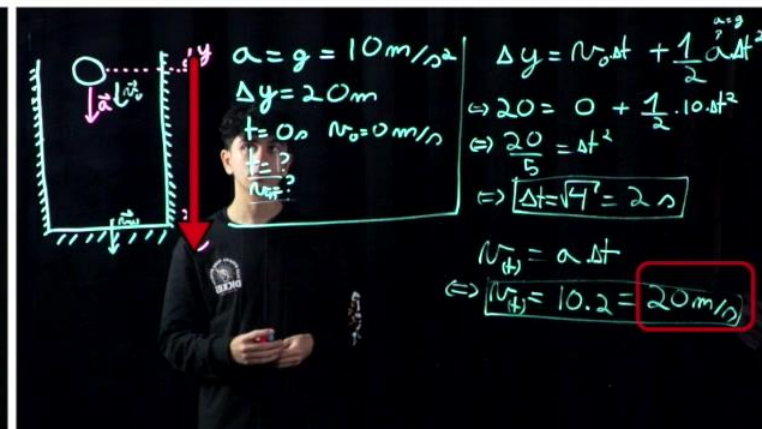 y
a = g = 10 m/s²
Δy = 20 m
t = 0s v₀ = 0 m/s
t = ?
v(t) = ?
a⃗ v⃗₀
a = g
Δy = v₀.Δt + 1/2 a Δt²
⇔ 20 = 0 + 1/2 . 10 . Δt²
⇔ 20/5 = Δt²
⇔ Δt = √4 = 2 s
v(t) = a.Δt
⇔ v(t) = 10.2 = 20 m/s